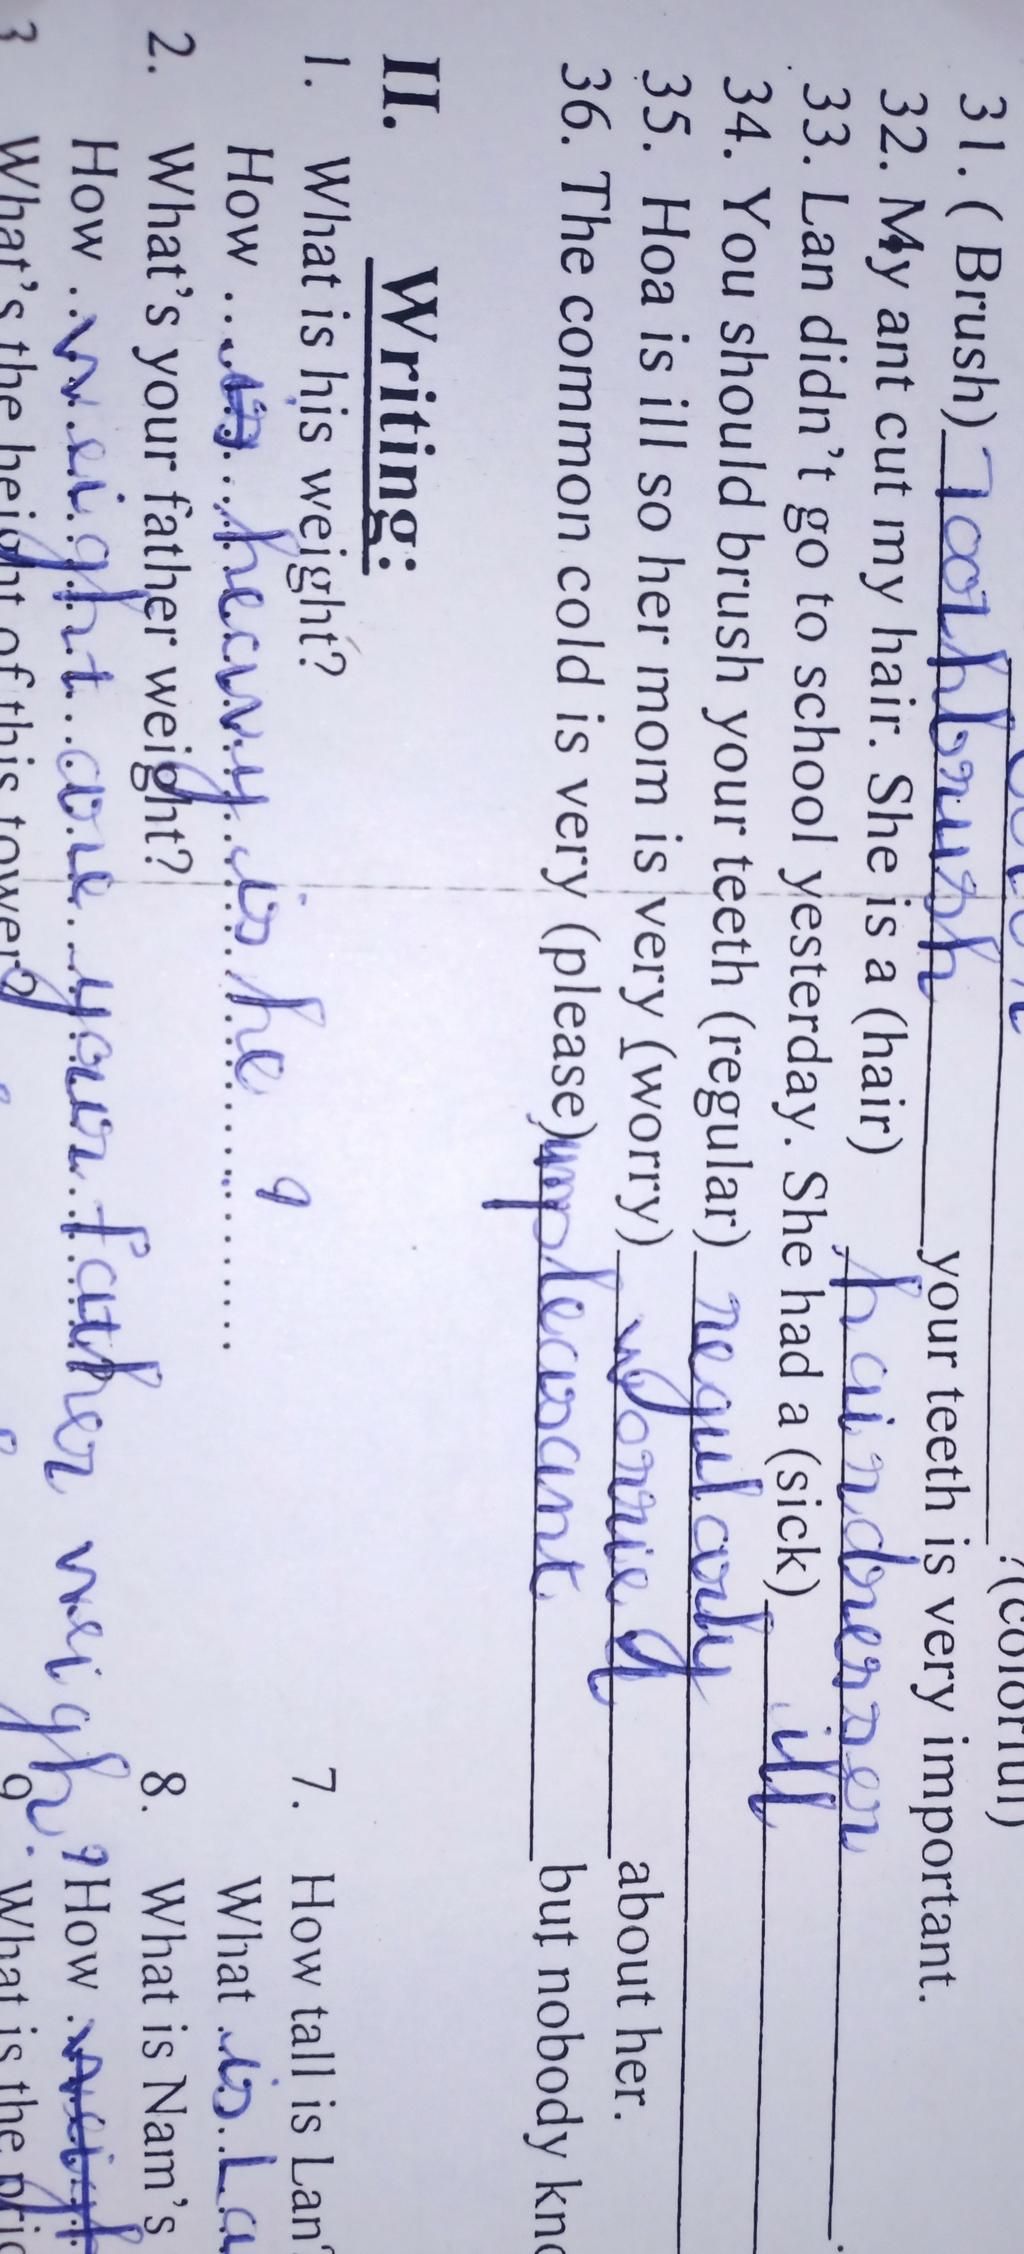 ? (colorful)
31. ( Brush) Toothbrush your teeth is very important.
32. My ant cut my hair. She is a (hair) hairdresser
33. Lan didn't go to school yesterday. She had a (sick) ill
34. You should brush your teeth (regular) regularly
35. Hoa is ill so her mom is very (worry) worried about her.
36. The common cold is very (please) unpleasant but nobody
II. Writing:
1. What is his weight?
How heavy is he ?
2. What's your father weight?
How weight are your father weigh ?
3 What's the height of this tower?
7. How tall is Lan?
What is
8. What is Nam's
How
9. What is the